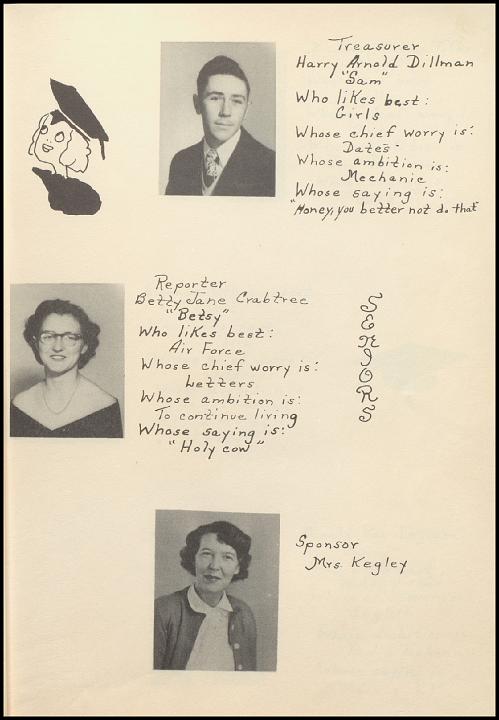 Treasurer
Harry Arnold Dillman
"Sam"
Who likes best:
Girls
Whose chief worry is:
Dates
Whose ambition is:
Mechanic
Whose saying is:
"Honey, you better not do that"
Reporter
Betty Jane Crabtree
"Betsy"
Who likes best:
Air Force
Whose chief worry is:
Letters
Whose ambition is:
To continue living
Whose saying is:
"Holy cow"
SENIORS
Sponsor
Mrs. Kegley